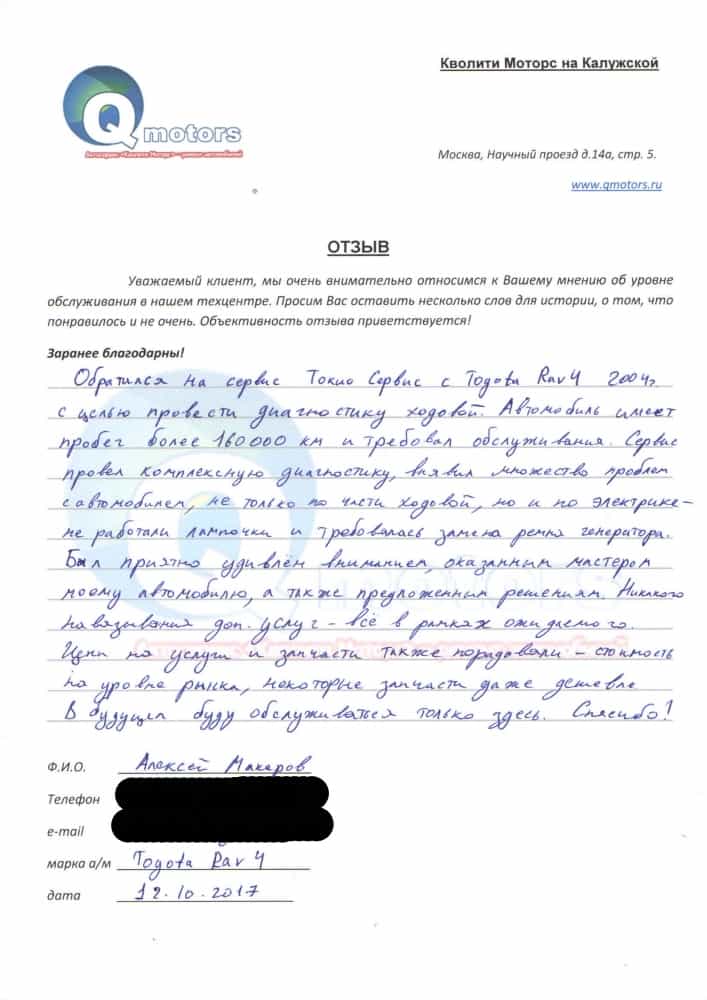 Кволити Моторс на Калужской
Q motors
Автосервис «Кволити Моторс» — ремонт автомобилей
Москва, Научный проезд д.14а, стр. 5.
www.qmotors.ru
ОТЗЫВ
Уважаемый клиент, мы очень внимательно относимся к Вашему мнению об уровне
обслуживания в нашем техцентре. Просим Вас оставить несколько слов для истории, о том, что
понравилось и не очень. Объективность отзыва приветствуется!
Заранее благодарны!
Обратился на сервис Токио Сервис с Toyota Rav4 2004г.
с целью провести диагностику ходовой. Автомобиль имеет
пробег более 160000 км и требовал обслуживания. Сервис
провел комплексную диагностику, выявил множество проблем
с автомобилем, не только по части ходовой, но и по электрике-
не работали лампочки и требовалась замена ремня генератора.
Был приятно удивлён вниманием, оказанным мастером
моему автомобилю, а также предложенным решениям. Никакого
навязывания доп. услуг - всё в рамках ожидаемого.
Цены на услуги и запчасти также порадовали - стоимость
на уровне рынка, некоторые запчасти даже дешевле
В будущем буду обслуживаться только здесь. Спасибо!
Ф.И.О. Алексей Макаров
Телефон
e-mail
марка а/м Toyota Rav 4
дата 12.10.2017